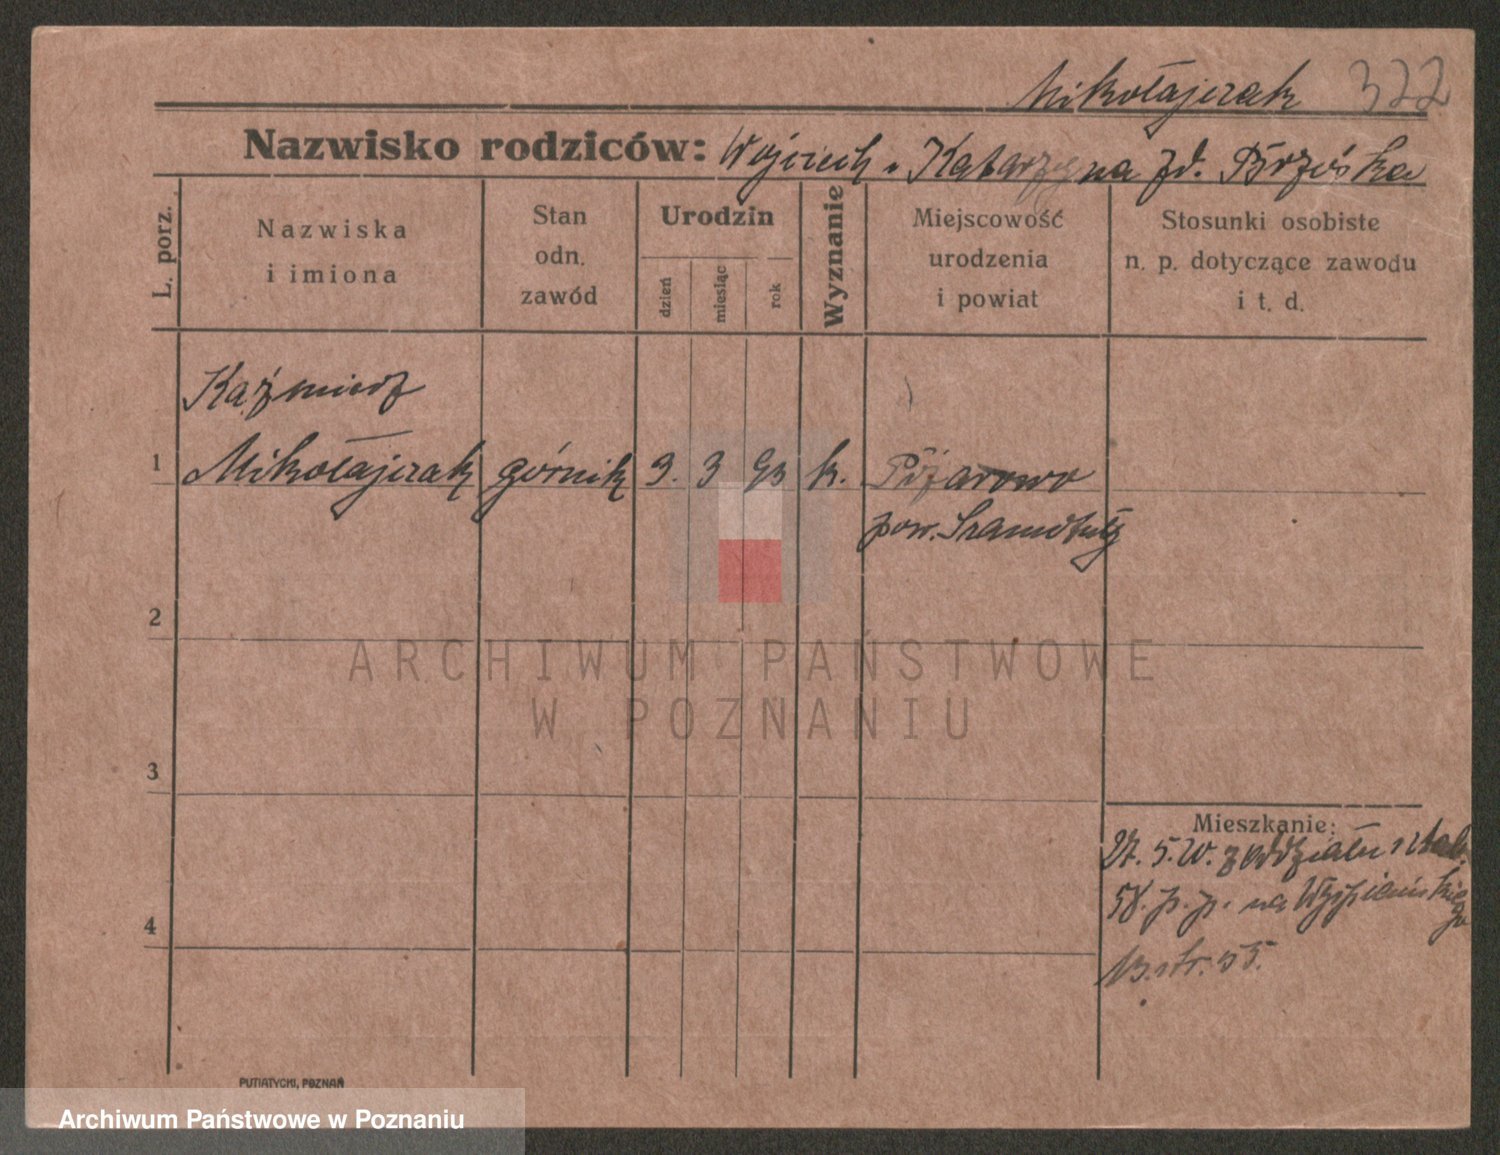 Mikołajczak 322
Nazwisko rodziców: Wojciech i Katarzyna zd. Brzóska
L. porz.
Nazwiska
i imiona
Stan
odn.
zawód
Urodzin
dzień
miesiąc
rok
Wyznanie
Miejscowość
urodzenia
i powiat
Stosunki osobiste
n. p. dotyczące zawodu
i t. d.
Kaźmierz
1 Mikołajczak górnik 9. 3 93 k. Pożarowo
pow. Szamotuły
2
ARCHIWUM PAŃSTWOWE
W POZNANIU
3
Mieszkanie:
5. W. z oddziału sztab.
58. p. p. na Wyspiańskiego
str. 35.
4
PUTIATYCKI, POZNAŃ
Archiwum Państwowe w Poznaniu